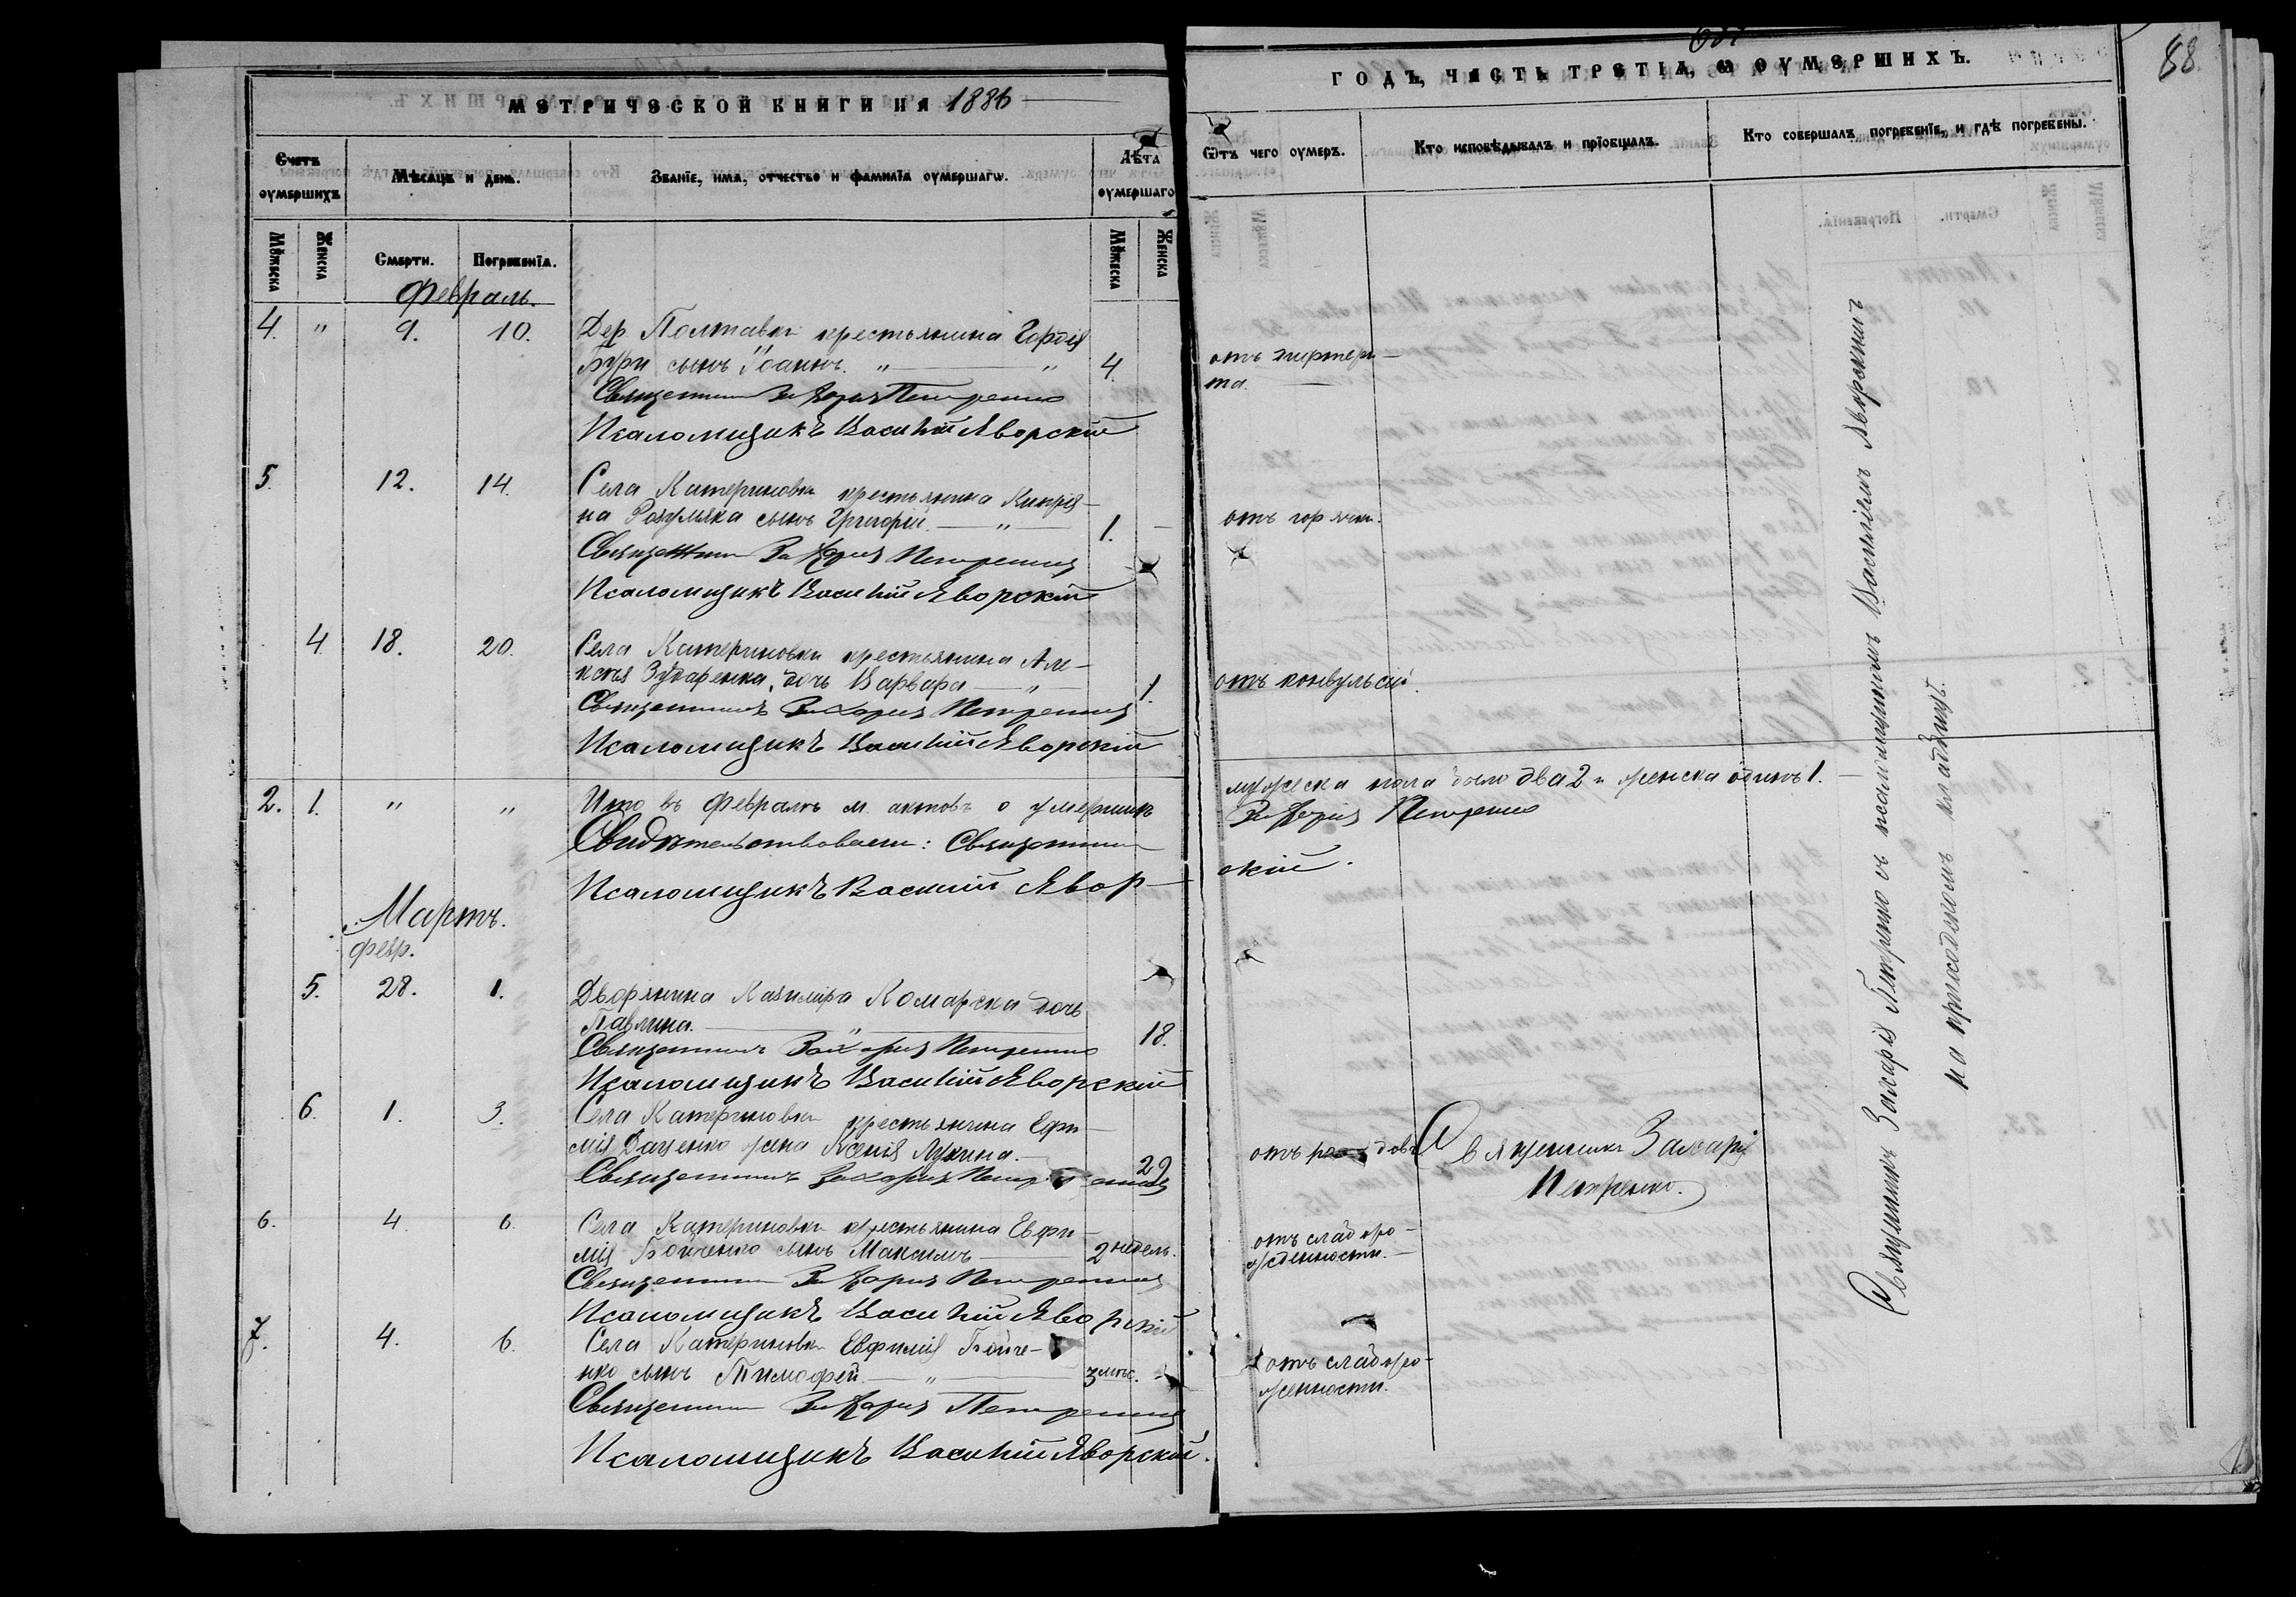 МЕТРИЧЕСКОЙ КНИГИ НА 1886
Счетъ оумершихъ
Мѣсяцъ и день.
Званїе, имя, отчество и фамилїя оумершагѡ.
Лѣта оумершаго
Мꙋжеска
Женска
Смерти.
Погребенїя.
Мꙋжеска
Женска
Февраль.
4. " 9. 10. Дер Полтавки крестьянина Гордія
Бури сынъ Іоаннъ. " " 4.
Священникъ Захарія Петренко
Псаломщикъ Василій Яворскій
5. 12. 14. Села Катериновки крестьянина Кипрія-
на сынъ Григорій — " — 1.
Священникъ Захарія Петренко
Псаломщикъ Василій Яворскій
4 18. 20. Села Катериновки крестьянина Але-
ксѣя дочь Варвара — " — 1.
Священникъ Захарія Петренко
Псаломщикъ Василій Яворскій
2. 1. " " Итого въ Февралѣ м. актовъ о умершихъ
Свидѣтельствовали: Священникъ
Псаломщикъ Василій Явор-
Мартъ.
Февр.
5. 28. 1. Дворянина Казиміра Комарска дочь
Павлина. — " — 18.
Священникъ Захарія Петренко
Псаломщикъ Василій Яворскій
6. 1. 3. Села Катериновки крестьянина Ефи-
мія Даценко жена Ксенія Лукина. — 29
Священникъ Захарія Петренко
6. 4 6. Села Катериновки крестьянина Евфи-
мія Бойченко сынъ Максимъ — 2 недель.
Священникъ Захарія Петренко
Псаломщикъ Василій Яворскій
7. 4. 6. Села Катериновки Евфимія Бойче-
нко сынъ Тимофей — " — 3 мѣс.
Священникъ Захарія Петренко
Псаломщикъ Василій Яворскій.
ГОДЪ, ЧАСТЬ ТРЕТІЯ, Ѡ ОУМЕРШИХЪ.
88
Ѿтъ чего оумеръ.
Кто исповѣдывалъ и прїобщалъ.
Кто совершалъ погребенїе, и гдѣ погребены.
отъ
та.
отъ горячки.
отъ конвульсій.
мужеска пола было два 2 и женска одинъ 1.
Захарія Петренко
скій.
отъ родовъ
Священникъ Захарія
Петренко.
отъ слаборо-
жденности.
отъ слаборо-
жденности.
Священникъ Захарія Петренко съ псаломщикомъ Василіемъ Яворскимъ
на приходскомъ кладбищѣ.